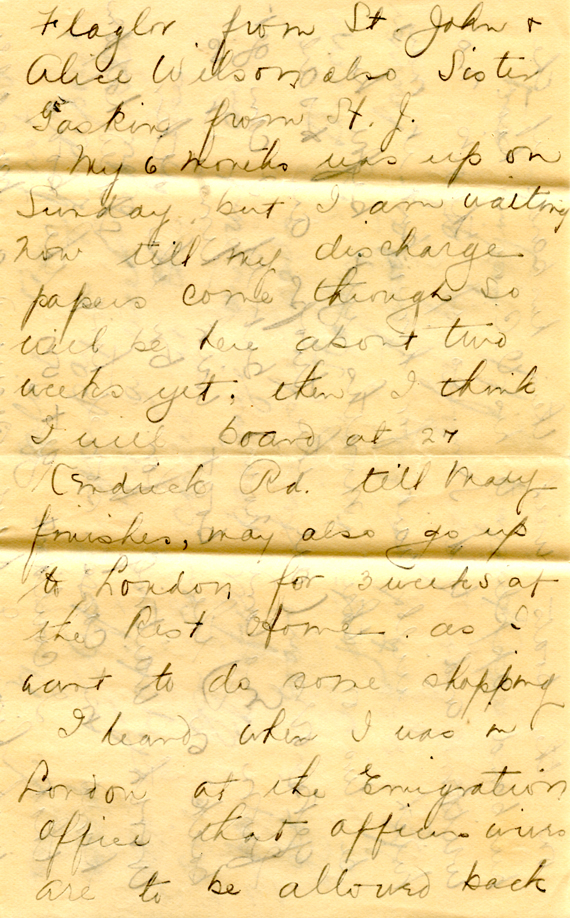 Flaglor from St. John &
Alice Wilson, also Sister
Gaskin from St. J.
My 6 months was up on
Sunday, but I am waiting
now till my discharge
papers come through so
will be here about two
weeks yet; then I think
I will board at 27
Kendrick Rd. till Mary
finishes, may also go up
to London for 3 weeks at
the Rest Home as I
want to do some shopping
I heard when I was in
London at the Emigration
Office that officers wives
are to be allowed back